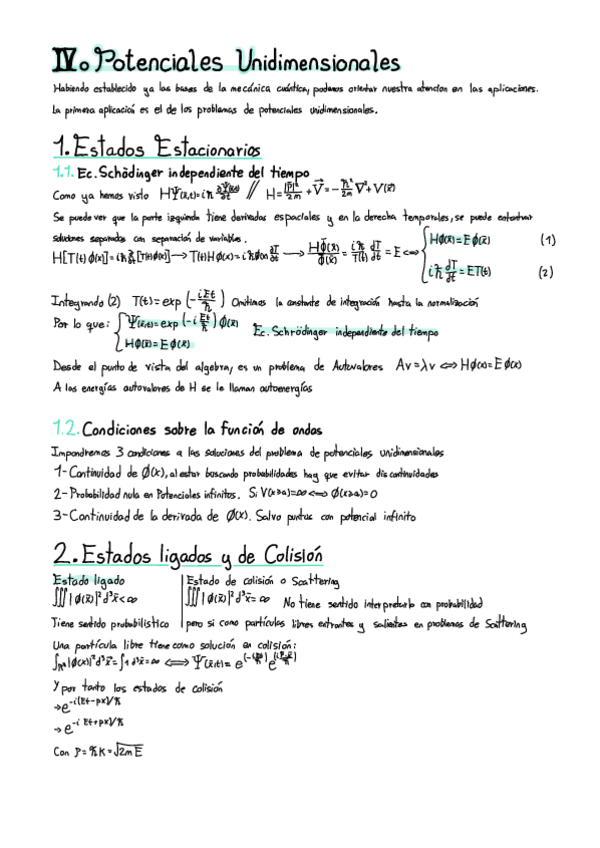 IV. Potenciales Unidimensionales
Habiendo establecido ya las bases de la mecánica cuántica, podemos orientar nuestra atencion en las aplicaciones.
La primera aplicación es el de los problemas de potenciales unidimensionales.
1. Estados Estacionarios
1.1. Ec. Schödinger independiente del tiempo
Como ya hemos visto HΨ(x̄,t)=iℏ ∂Ψ(x̄,t)/∂t // H= |P̄|²/2m + V⃗ = -ℏ²/2m ∇² + V(x̄)
Se puede ver que la parte izquierda tiene derivadas espaciales y en la derecha temporales, se puede encontrar
soluciones separadas con separación de variables.
H[T(t)ϕ(x)]=iℏ ∂/∂t [T(t)ϕ(x)] → T(t)Hϕ(x)=iℏϕ(x) dT/dt → Hϕ(x̄)/ϕ(x̄) = iℏ/T(t) dT/dt = E ⟺ { Hϕ(x̄)=Eϕ(x̄) (1)
iℏ dT/dt = ET(t) (2)
Integrando (2) T(t)=exp(-iEt/ℏ) Omitimos la constante de integración hasta la normalización
Por lo que: { Ψ(x̄,t)=exp(-i Et/ℏ)ϕ(x̄) Ec. Schrödinger independiente del tiempo
Hϕ(x̄)=Eϕ(x̄)
Desde el punto de vista del algebra, es un problema de Autovalores Av=λv ⟺ Hϕ(x)=Eϕ(x)
A las energías autovalores de H se le llaman autoenergías
1.2. Condiciones sobre la función de ondas
Impondremos 3 condiciones a las soluciones del problema de potenciales unidimensionales
1-Continuidad de ϕ(x), al estar buscando probabilidades hay que evitar discontinuidades
2-Probabilidad nula en Potenciales infinitos. Si V(x≥a)=∞ ⟺ ϕ(x≥a)=0
3-Continuidad de la derivada de ϕ(x). Salvo puntos con potencial infinito
2. Estados ligados y de Colisión
Estado ligado
∭|ϕ(x̄)|² d³x̄<∞
Tiene sentido probabilístico
Estado de colisión o Scattering
∭|ϕ(x̄)|² d³x̄=∞ No tiene sentido interpretarlo con probabilidad
pero si como partículas libres entrantes y salientes en problemas de Scattering
Una partícula libre tiene como solución en colisión:
∫|ϕ(x)|² d³x̄=∫1 d³x̄=∞ ⟺ Ψ(x̄,t)=
Y por tanto los estados de colisión
→e^-i(Et-px)/ℏ
→e^-i Et+px)/ℏ
Con P=ℏK=√2mE